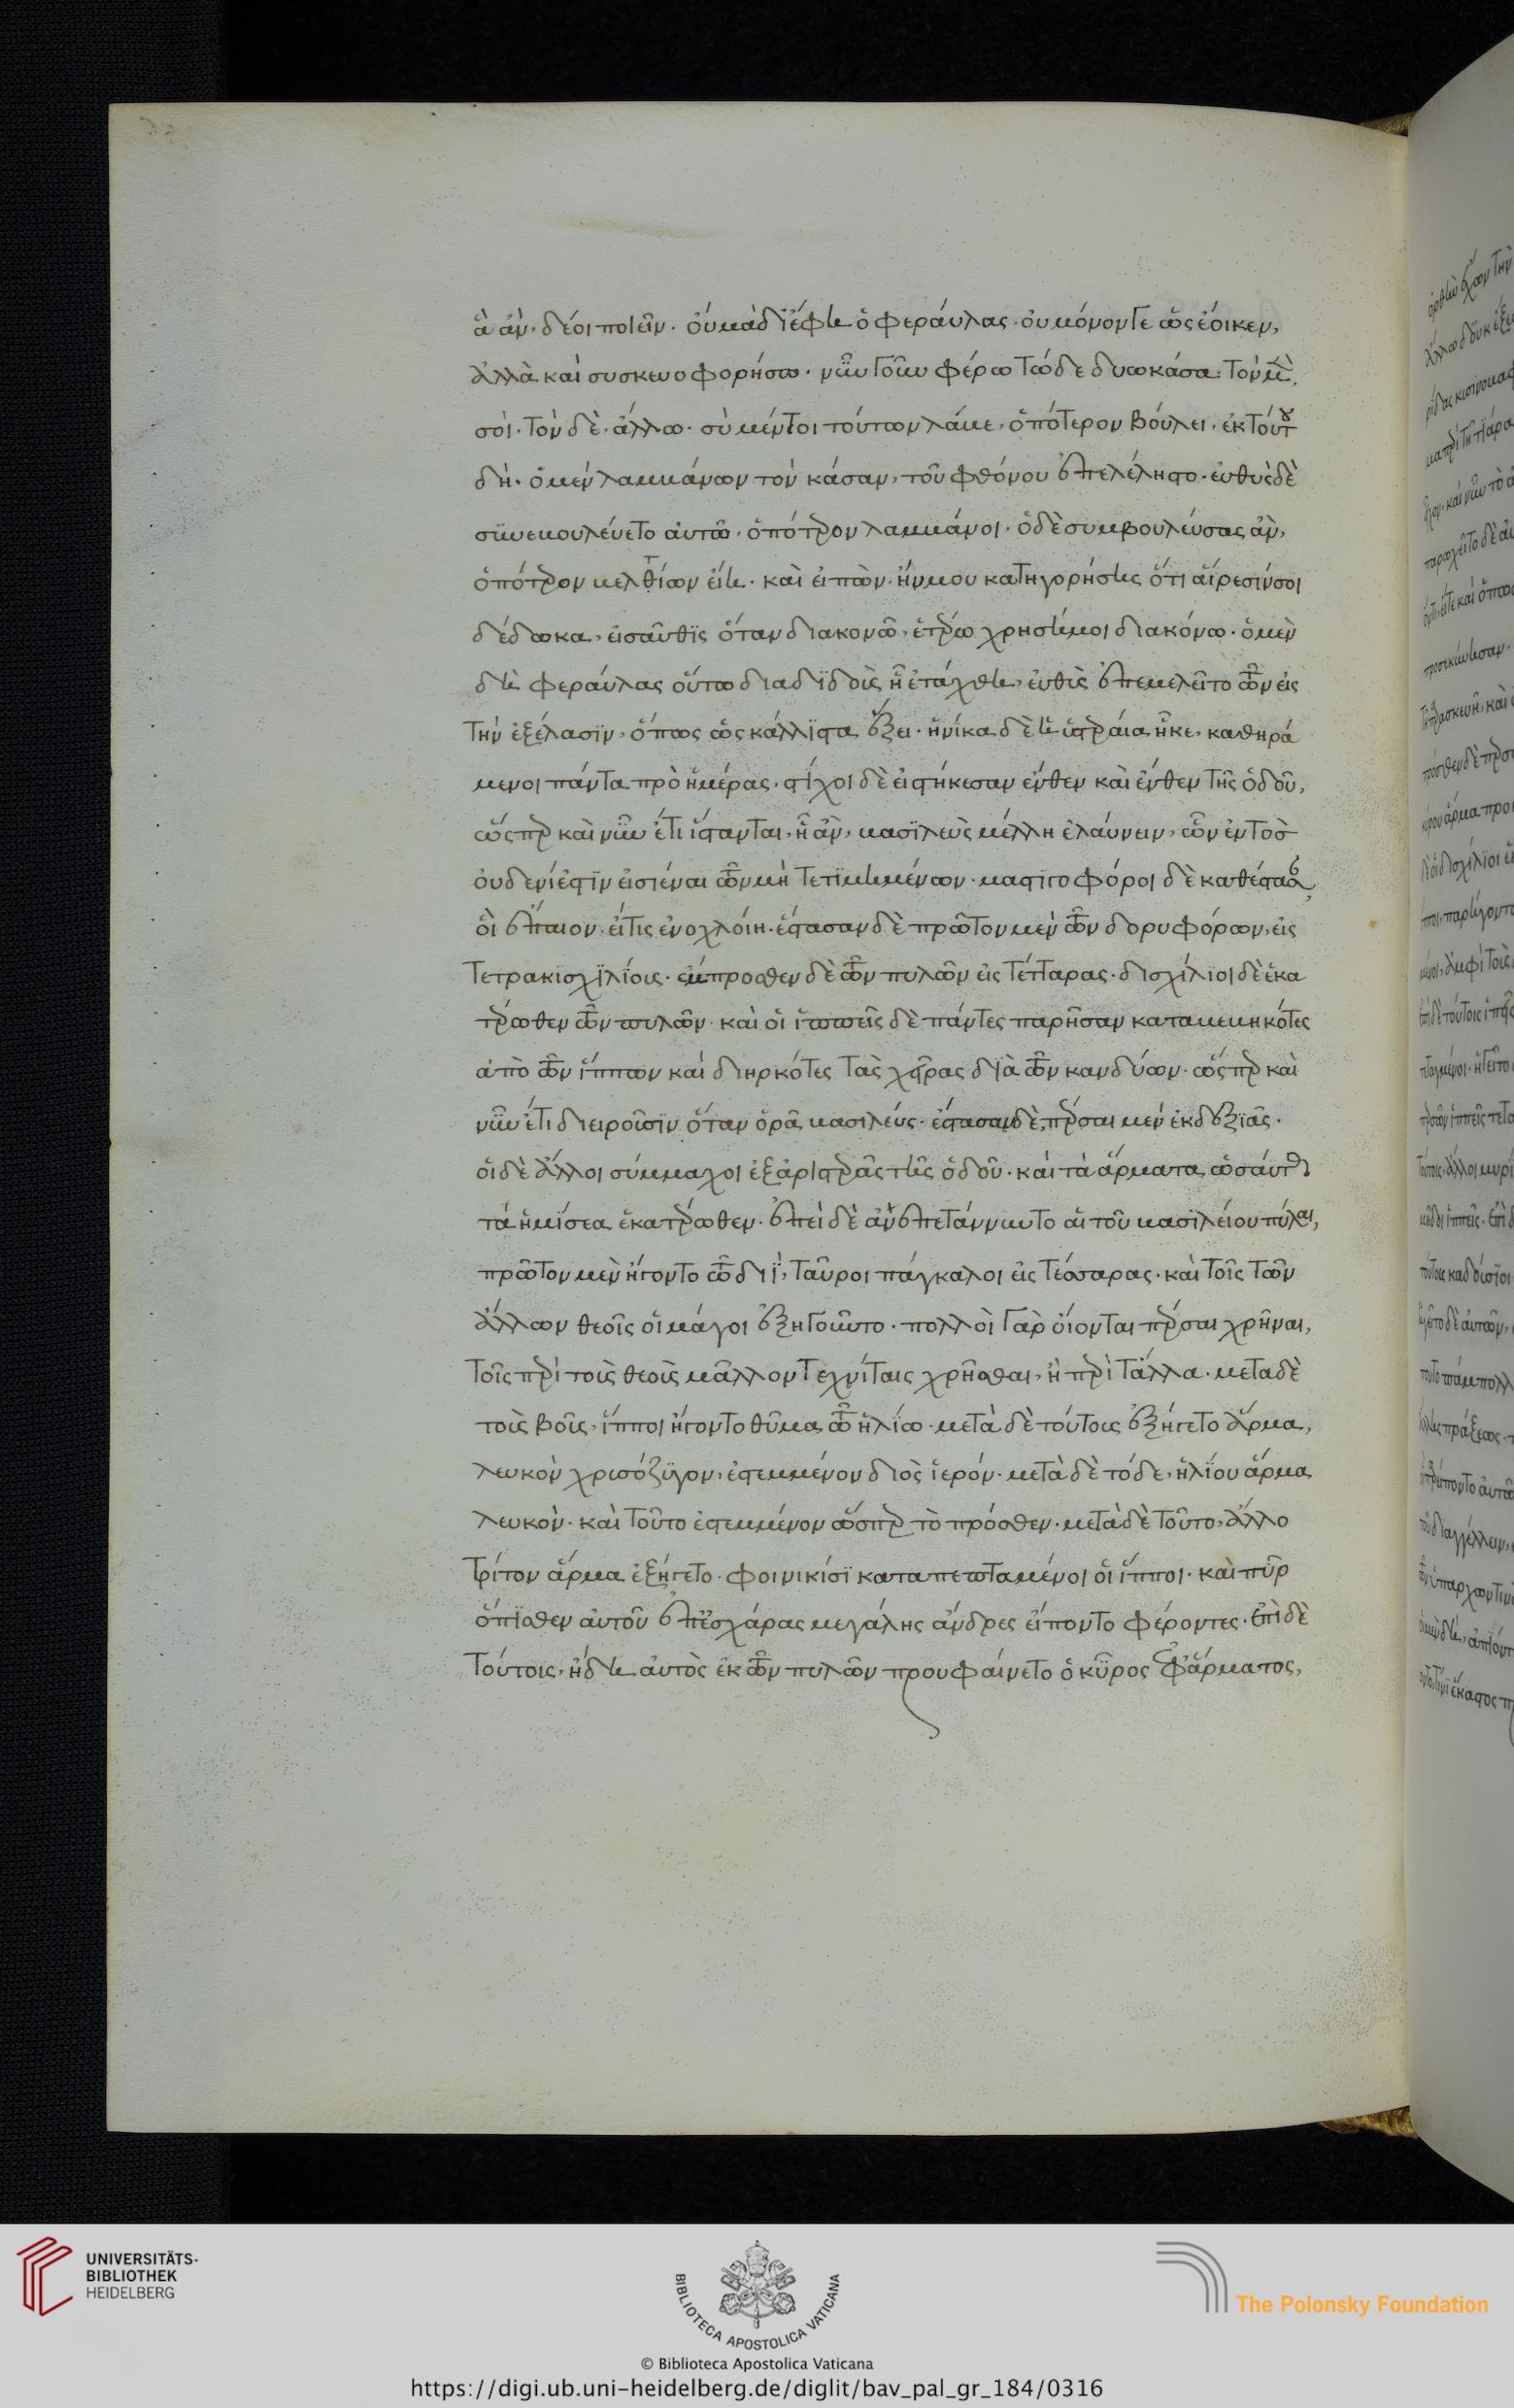 ἃ ἂν, δέοι ποιεῖν. οὐ μὰ δί ἔφη ὁ φεραύλας. οὐ μόνον γε ὡς ἔοικεν,
ἀλλὰ καὶ συσκευοφορήσω. νῦν γοῦν φέρω τώδε δυω κάσα. τὸν μὲν,
σοί. τὸν δὲ, ἄλλω. σὺ μέντοι τούτων λάβε, ὁπότερον βούλει. ἐκ τούτου
δὴ. ὁ μὲν λαμβάνων τὸν κάσαν, τοῦ φθόνου ἐπελέληστο. εὐθὺς δὲ
συνεβουλεύετο αὐτῶ. ὁπότερον λαμβάνοι. ὁ δὲ συμβουλεύσας ἂν,
ὁπότερον βελτίων εἴη. καὶ εἰπὼν. ἤν μου κατηγορήσης ὅτι αἵρεσίν σοι
δέδωκα, εἰσαῦθις ὅταν διακονῶ, ἑτέρω χρήση μοι διακόνω. ὁ μὲν
δὴ φεραύλας οὕτω διαδιδοὶς ἧ ἐτάχθη, εὐθὶς ἐπεμελεῖτο τῶν εἰς
τὴν ἐξέλασιν, ὅπως ὡς κάλλιστα ἕξει. ἡνίκα δὲ ἡ ὑστεραία ἧκε, καθηρά
μενοι πάντα πρὸ ἡμέρας. στίχοι δὲ εἱστήκεσαν ἔνθεν καὶ ἔνθεν τῆς ὁδοῦ,
ὥσπερ καὶ νῦν ἔτι ἵστανται, ἧ ἂν, βασιλεὺς μέλλη ἐλαύνειν, ὧν ἐντὸς
οὐδενί ἐστιν εἰσιέναι τῶν μὴ τετιμημένων. μαστιγοφόροι δὲ καθέστασαν,
οἳ ἔπαιον, εἴτις ἐνοχλοίη. ἕστασαν δὲ πρῶτον μὲν τῶν δορυφόρων, εἰς
τετρακισχιλίοις. ἔμπροσθεν δὲ τῶν πυλῶν εἰς τέτταρας. δισχίλιοι δὲ ἑκα
τέρωθεν τῶν πυλῶν. καὶ οἱ ἱππεῖς δὲ πάντες παρῆσαν καταβεβηκότες
ἀπὸ τῶν ἵππων καὶ διηρκότες τὰς χεῖρας διὰ τῶν κανδύων. ὥσπερ καὶ
νῦν ἔτι διειροῦσιν ὅταν ὁρᾶ βασιλεύς. ἕστασαν δὲ, πέρσαι μὲν ἐκ δεξιᾶς.
οἱ δὲ ἄλλοι σύμμαχοι ἐξ ἀριστερᾶς τῆς ὁδοῦ. καὶ τὰ ἅρματα, ὡσαύτως
τὰ ἡμίσεα ἑκατέρωθεν. ἐπεὶ δὲ ἀνεπετάννυντο αἱ τοῦ βασιλείου πύλαι,
πρῶτον μὲν ἤγοντο τῶ διΐ, ταῦροι πάγκαλοι εἰς τέσσαρας. καὶ τοῖς τῶν
ἄλλων θεοῖς οἱ μάγοι ἐξηγοῦντο. πολλοὶ γὰρ οἴονται πέρσαι χρῆναι,
τοῖς περὶ τοὶς θεοὶς μᾶλλον τεχνίταις χρῆσθαι, ἢ περὶ τἆλλα. μετα δὲ
τοὶς βοῦς, ἵπποι ἤγοντο θῦμα τῶ ἡλίω. μετὰ δὲ τούτοις ἐξήγετο ἅρμα,
λευκὸν χρισόζυγον, ἐστεμμένον διὸς ἱερόν. μετὰ δὲ τόδε, ἡλίου ἅρμα
λευκὸν. καὶ τοῦτο ἐστεμμένον ὥσπερ τὸ πρόσθεν. μετὰ δὲ τοῦτο, ἄλλο
τρίτον ἅρμα ἐξήγετο. φοινικίσι καταπεπταμένοι οἱ ἵπποι. καὶ πῦρ
ὄπισθεν αὐτοῦ ἐπ' ἐσχάρας μεγάλης ἄνδρες εἵποντο φέροντες. ἐπὶ δὲ
τούτοις, ἤδη αὐτὸς ἐκ τῶν πυλῶν προυφαίνετο ὁ κῦρος ἐφ' ἅρματος,
UNIVERSITÄTS-
BIBLIOTHEK
HEIDELBERG
BIBLIOTECA APOSTOLICA VATICANA
The Polonsky Foundation
© Biblioteca Apostolica Vaticana
https://digi.ub.uni-heidelberg.de/diglit/bav_pal_gr_184/0316